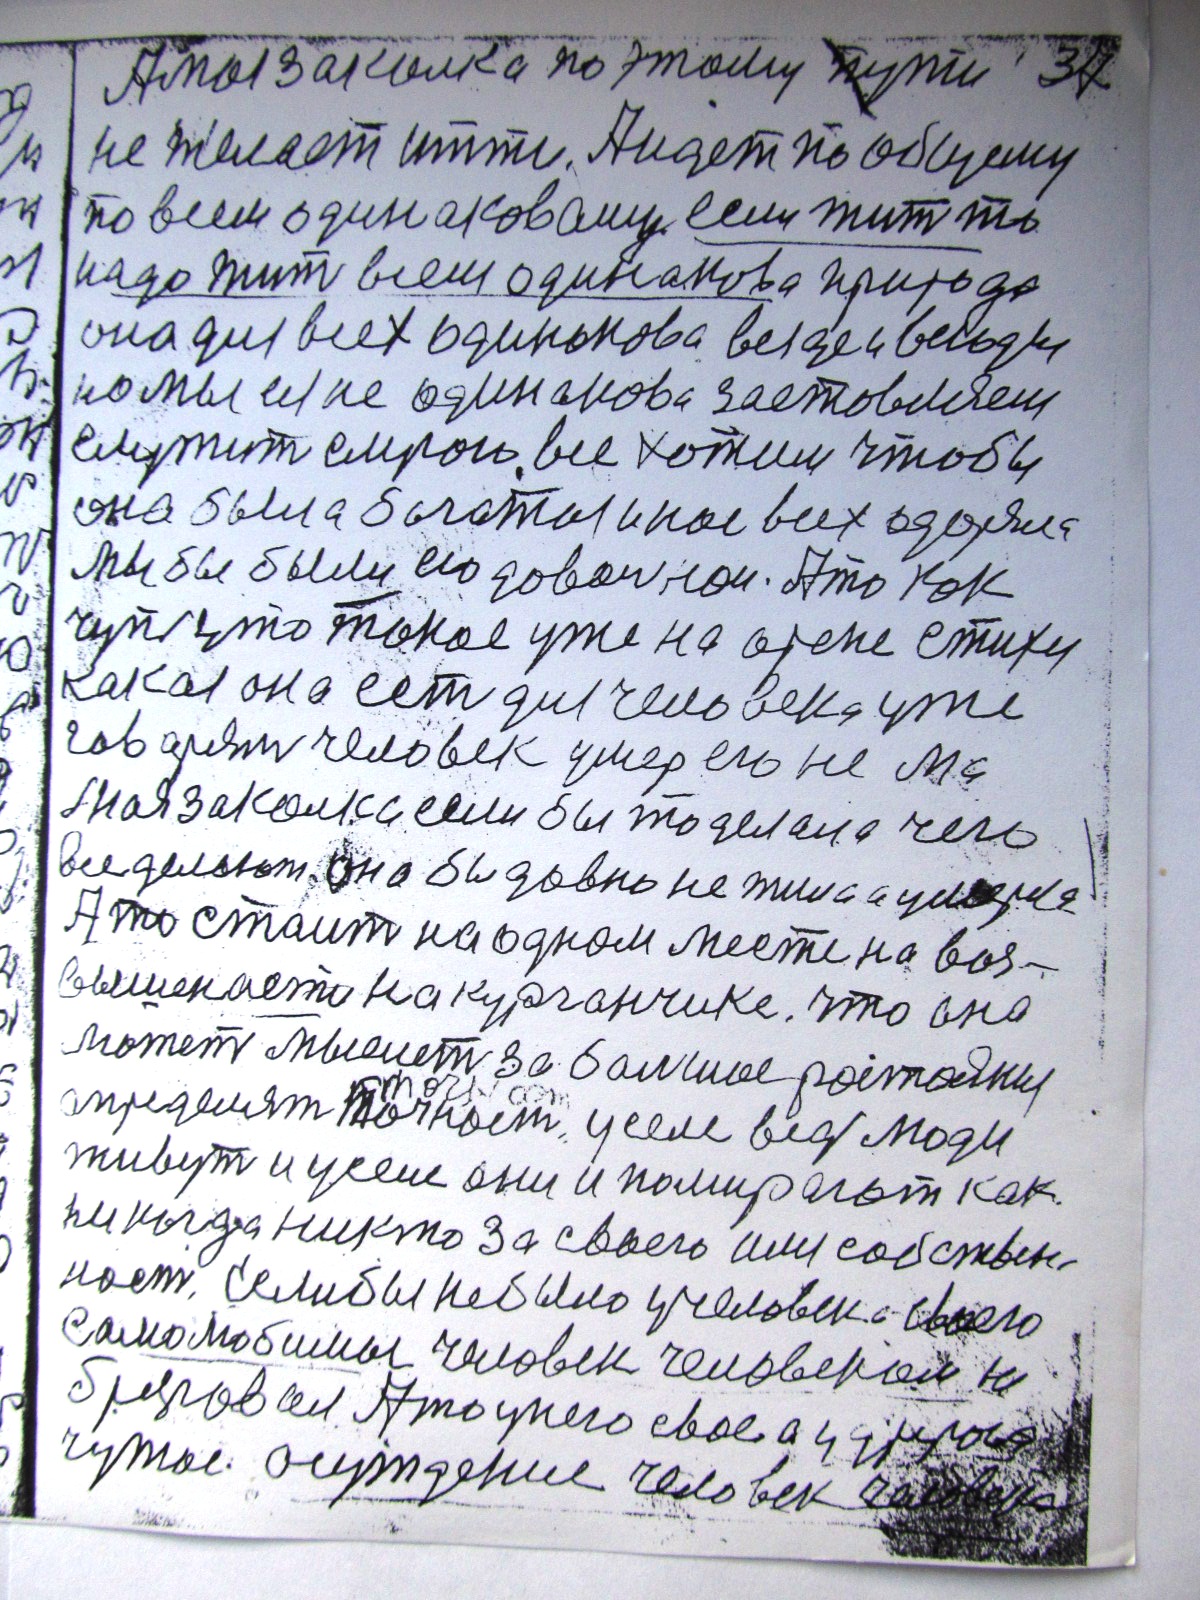 А моя заколка по этому пути 34
не желает итти. А идет по общему
по всем одинаковому. если жит то
надо жит всем одинакова природа
она для всех одинокова везде и всюди
но мы ея не одинакова заставляем
служит сырою. все хотим чтобы
она была богатыя и нас всех одоряла
мы бы были ею довольнои. А то как
что такое уже на арене стихи
какая она ест для человека уже
говарят человек умер его не ма
Эная заколка если бы то делала чего
все делают. она бы довно не жила а умерла
А то стаит на одном месте на воз-
вышености на курганчике. что она
можетъ мыслет за балшое растояния
определят точност, у селе ведь люди
живут и у селе они и помирают как
никогда никто за своего или собствен-
ност. Если бы не было у человека своего
самолюбимыя человек человеком не
брязговал А то у него свое. а у другога
чужое. осуждение человек человека